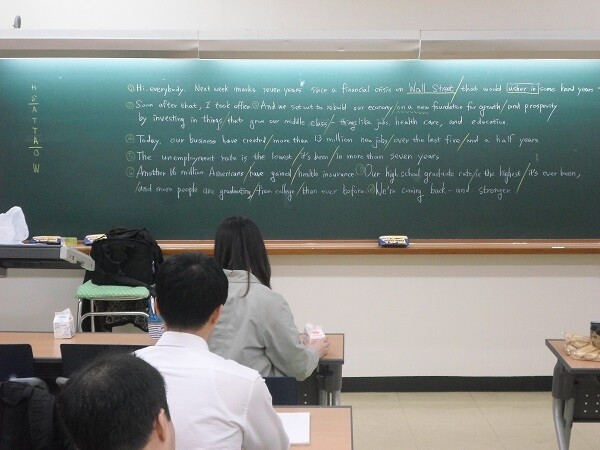 ① Hi, everybody. Next week marks seven years since a financial crisis on Wall Street / that would usher in some hard years
② Soon after that, I took office. ③ And we set out to rebuild our economy / on a new foundation for growth / and prosperity
by investing in things / that grow our middle class / - things like jobs, health care, and education.
④ Today, our business have created / more than 13 million new jobs / over the last five / and a half years
⑤ The unemployment rate is the lowest / it's been / in more than seven years
⑥ Another 16 million Americans / have gained / health insurance. ⑦ Our high school graduate rate / is the highest / it's ever been,
/ and more people are graduating / from college / than ever before. ⑧ We're coming back - and stronger
H
E
A
T
T
A
O
W